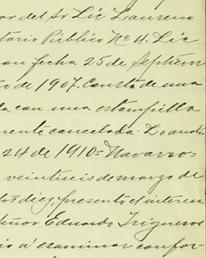 or del Sr Lic Laureno
tario Público No 4. Lic
con fecha 25 de Septiem
o de 1907. Consta de una
a con una estampilla
ente cancelada. Doanoto
24 de 1910= Navarro=
veintiseis de marzo de
tos diez, presente el interesa
eñor Eduardo Trigueros
io a examinar confor-